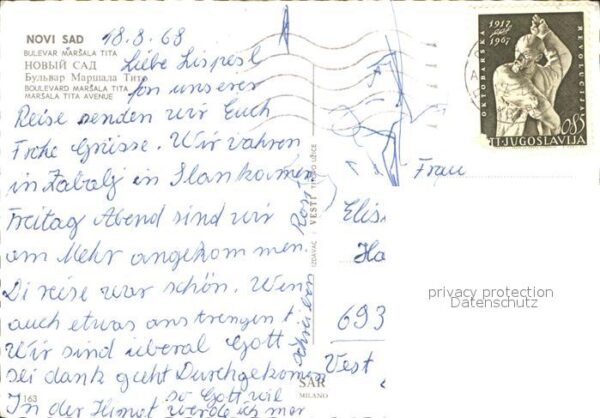 NOVI SAD 18.8.68
BULEVAR MARŠALA TITA
НОВЫЙ САД
Бульвар Маршала Тито
BOULEVARD MARŠALA TITA
MARŠALA TITA AVENUE
Liebe
Fon unserer
Reise senden wir Euch
Frohe Grüsse. Wir vahren
in Zabalj in Slankamen
Freitag Abend sind wir
am Mehr angekommen.
Di reise war schön. Wen
auch etwas anstrengent
Wir sind ueberal Gott
sei dank guht Durchgekomen
so Gott wil
In der Heimat werde ich mer
schreiben
163
IZDAVAČ VESTI TITOVO UŽICE
SAR
MILANO
OKTOBARSKA 1917 1967 REVOLUCIJA
0,85
JUGOSLAVIJA
Frau
Elis
Ha
693
Vest
privacy protection
Datenschutz